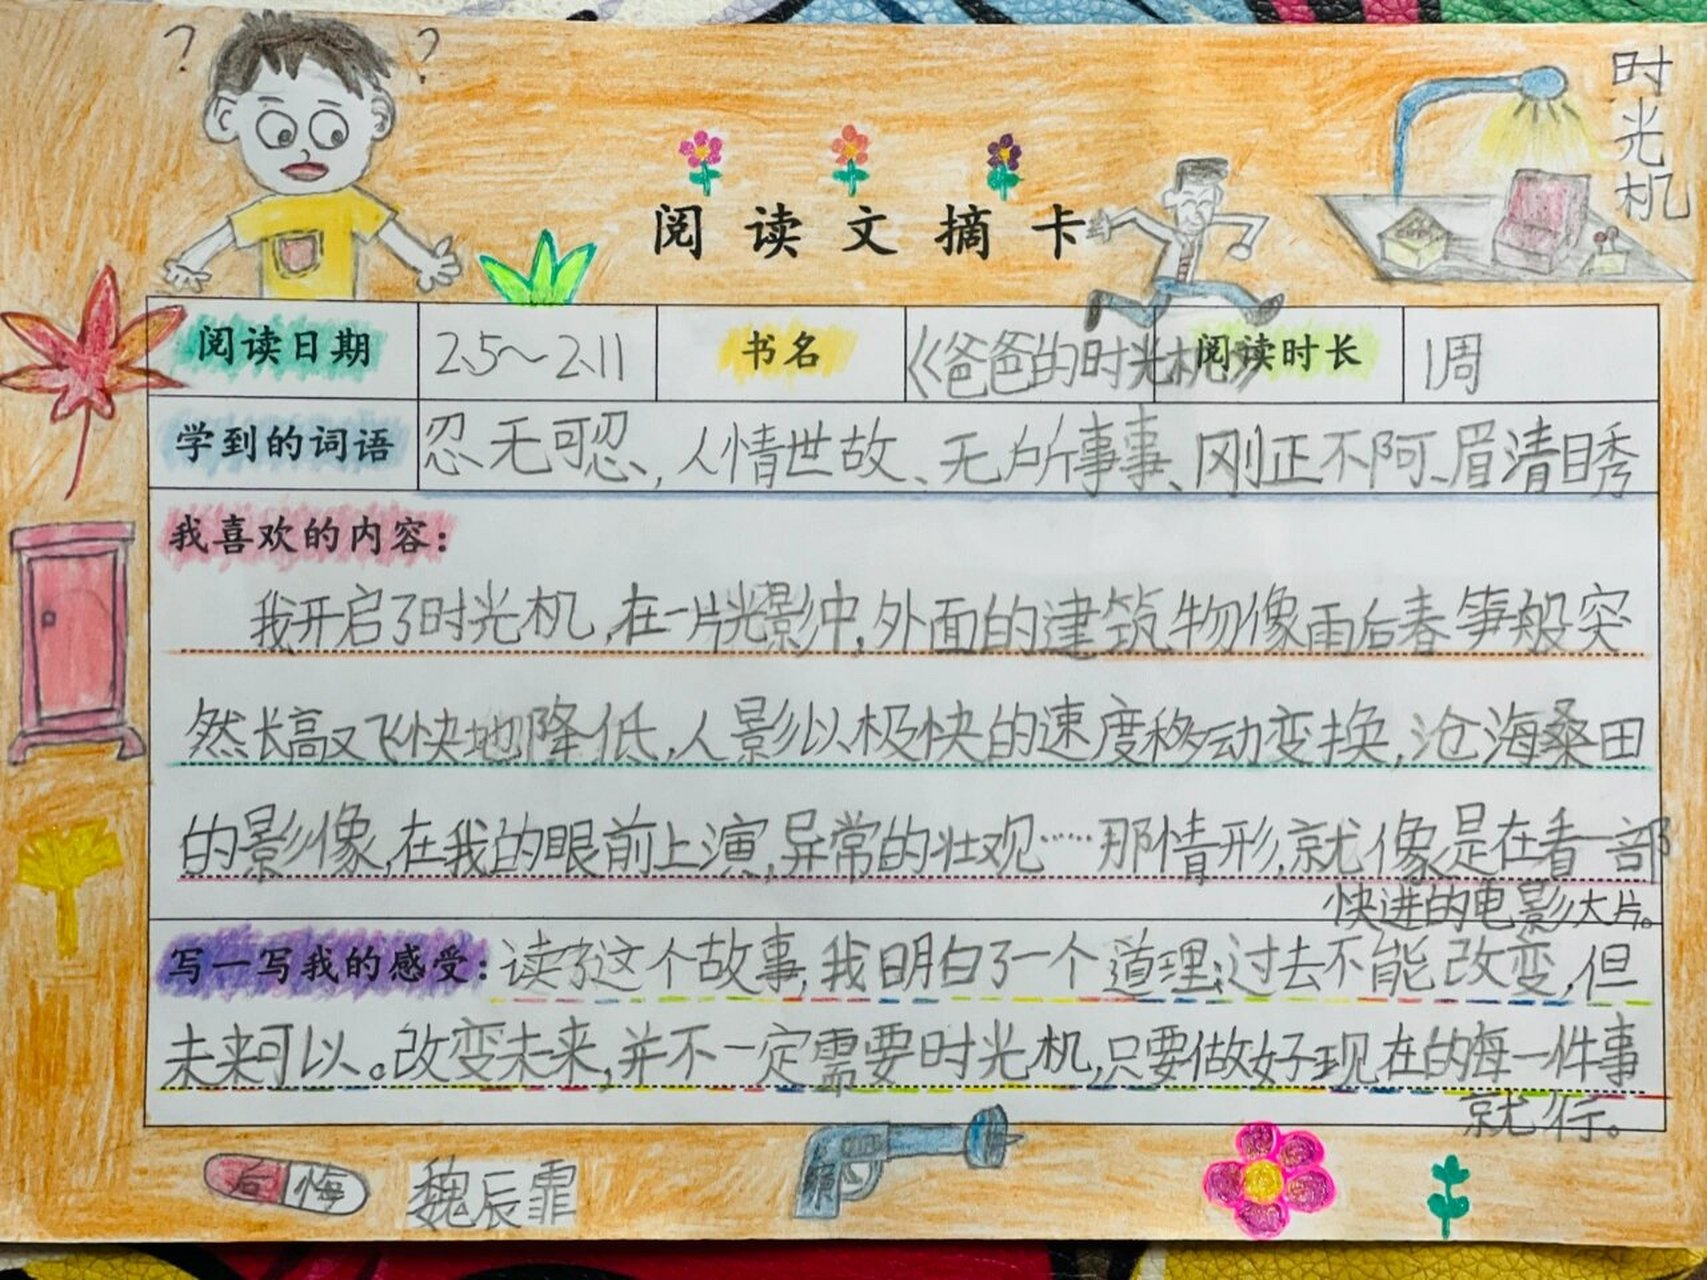 ? ?
时光机
阅读文摘卡
阅读日期 2.5～2.11 书名 《爸爸的时光机》 阅读时长 1周
学到的词语 忍无可忍、人情世故、无所事事、刚正不阿、眉清目秀
我喜欢的内容：
我开启了时光机,在一片光影中,外面的建筑物像雨后春笋般突
然长高又飞快地降低,人影以极快的速度移动变换,沧海桑田
的影像,在我的眼前上演,异常的壮观……那情形,就像是在看一部
快进的电影大片。
写一写我的感受：读了这个故事,我明白了一个道理:过去不能改变,但
未来可以。改变未来,并不一定需要时光机,只要做好现在的每一件事
就行。
后悔 魏辰霏